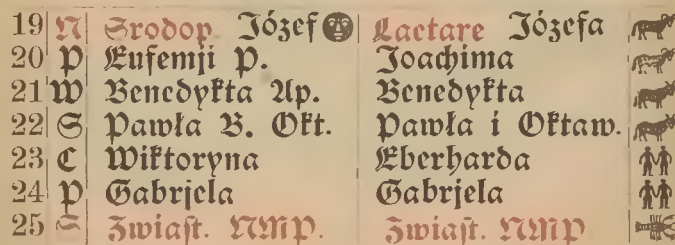 19 N Srodop. Józef Laetare Józefa
20 P Eufemji P. Joachima
21 W Benedykta Ap. Benedykta
22 S Pawła B. Okt. Pawła i Oktaw.
23 C Wiktoryna Eberharda
24 P Gabrjela Gabrjela
25 S Zwiast. NMP. Zwiast. NMP